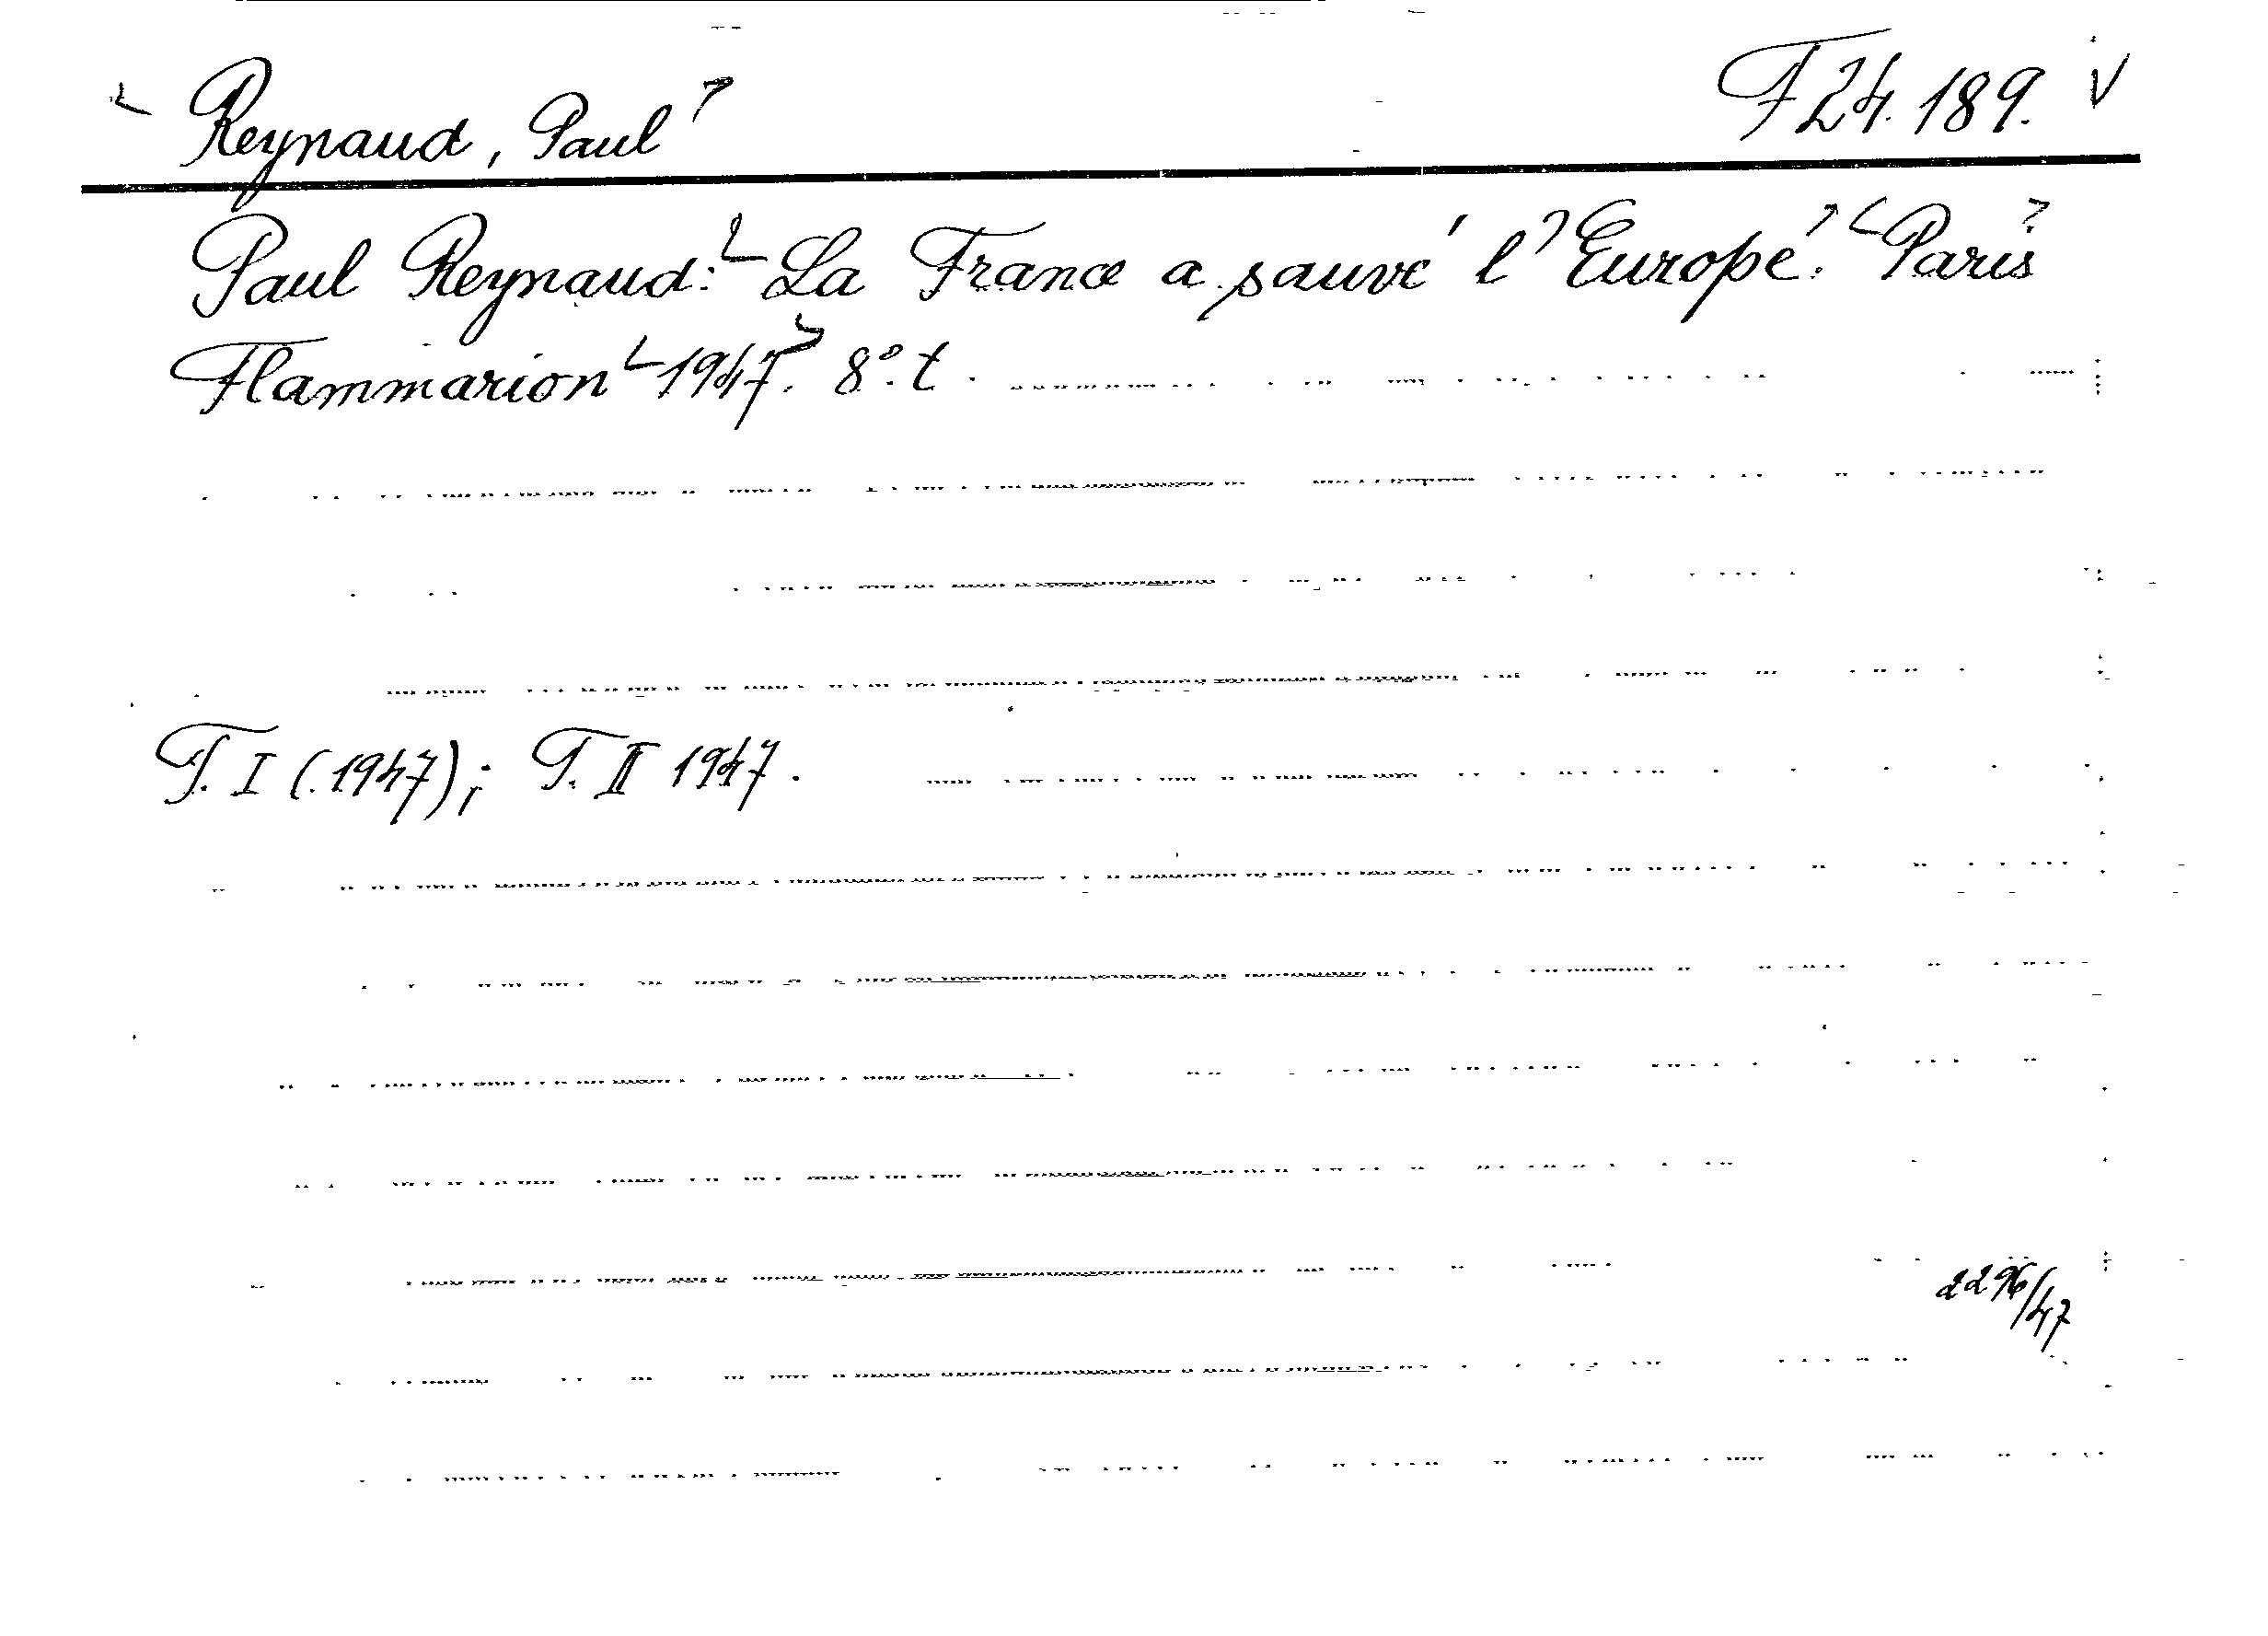 Reynaud, Paul F 24.189. V
Paul Reynaud: La France a sauvé l'Europe. Paris
Flammarion 1947. 8°. t.
T. I (1947); T. II 1947.
2296/47